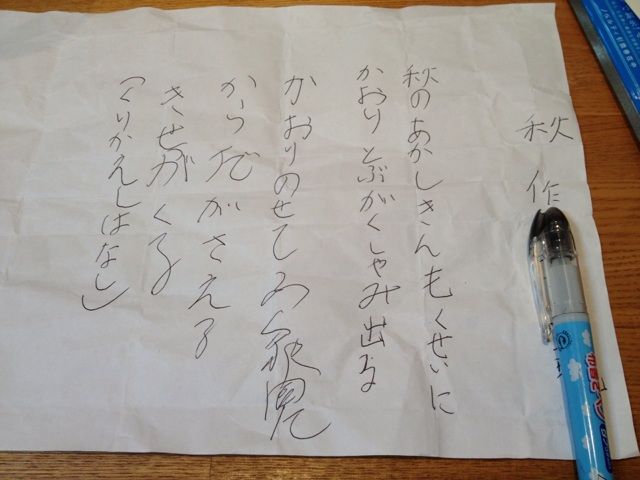 秋 作
秋のあかしきんもくせいに
かおりとぶがくしゃみ出る
かおりのせて
がさえる
きせがくる
(くりかえしはなし)